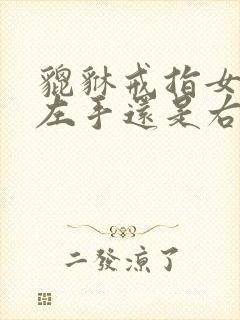 貔貅戒指女
左手還是右
二發涼了